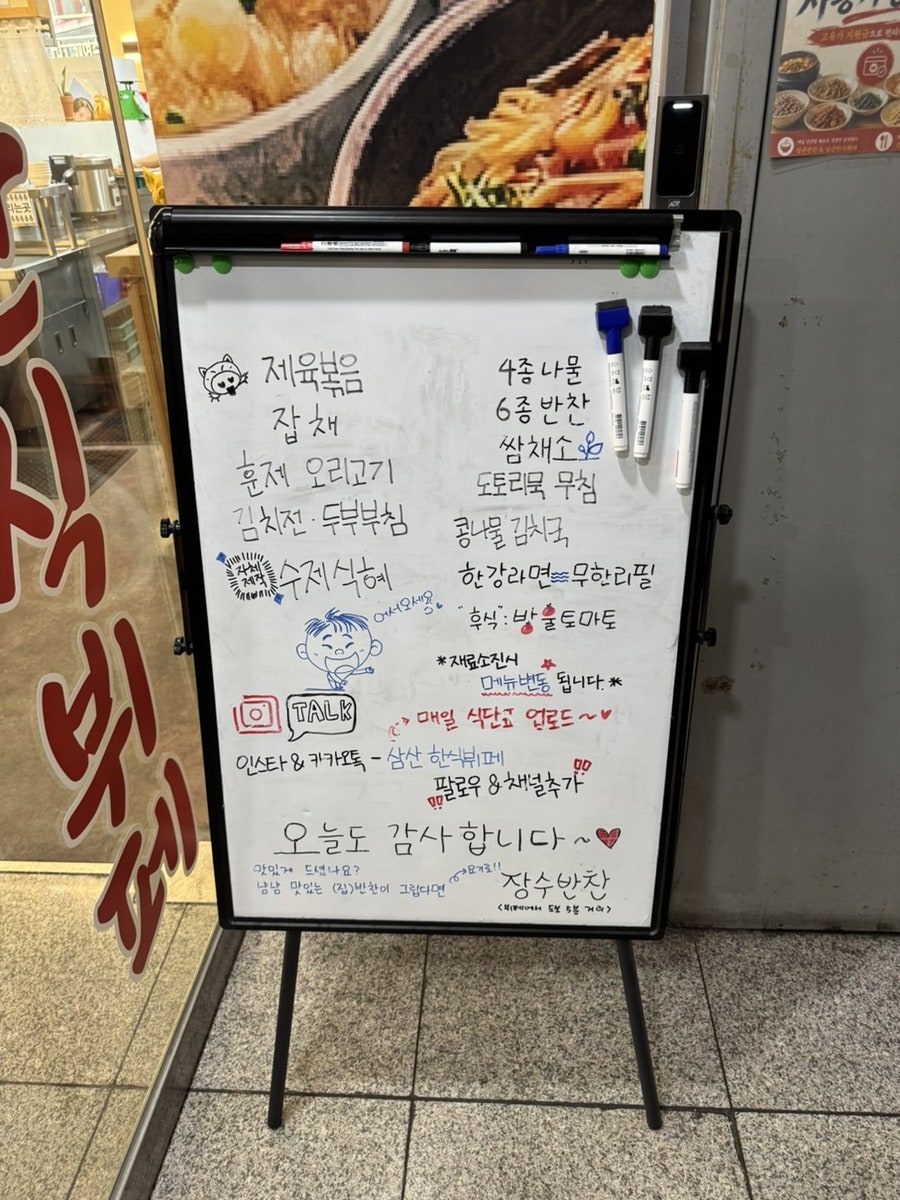 제육볶음
잡채
훈제 오리고기
김치전·두부부침
자체
제작
수제식혜
어서오세용
4종 나물
6종 반찬
쌈채소
도토리묵 무침
콩나물 김치국
한강라면 무한리필
"후식": 방울토마토
*재료소진시
메뉴변동 됩니다.*
TALK
매일 식단표 업로드~
인스타 & 카카오톡 - 삼산 한식뷔페
팔로우 & 채널추가
오늘도 감사합니다~
맛있게 드셨나요?
냠냠 맛있는 (집)반찬이 그립다면
요기로!!
장수반찬
<뷔페에서 도보 5분 거리>
식
뷔
페
ADT